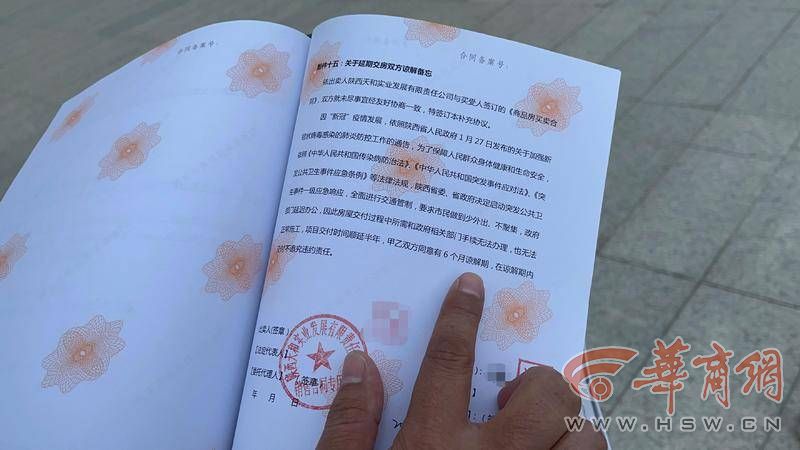 合同备案号:
合同备案号:
附件十五：关于延期交房双方谅解备忘
依出卖人陕西天和实业发展有限责任公司与买受人签订的《商品房买卖合
同》，双方就未尽事宜经友好协商一致，特签订本补充协议。
因“新冠”疫情发展，依照陕西省人民政府1月27日发布的关于加强新
冠状病毒感染的肺炎防控工作的通告，为了保障人民群众身体健康和生命安全，
依照《中华人民共和国传染病防治法》、《中华人民共和国突发事件应对法》、《突
发公共卫生事件应急条例》等法律法规，陕西省委、省政府决定启动突发公共卫
生事件一级应急响应，全面进行交通管制，要求市民做到少外出、不聚集，政府
部门延迟办公，因此房屋交付过程中所需和政府相关部门手续无法办理，也无法
正常施工，项目交付时间顺延半年，甲乙双方同意有6个月谅解期，在谅解期内
不追究违约责任。
出卖人(签章)
【法定代表人】
【委托代理人】
(签章
年 月 日
陕西天和实业发展有限责任
销售合同专用
華商網
WWW.HSW.CN